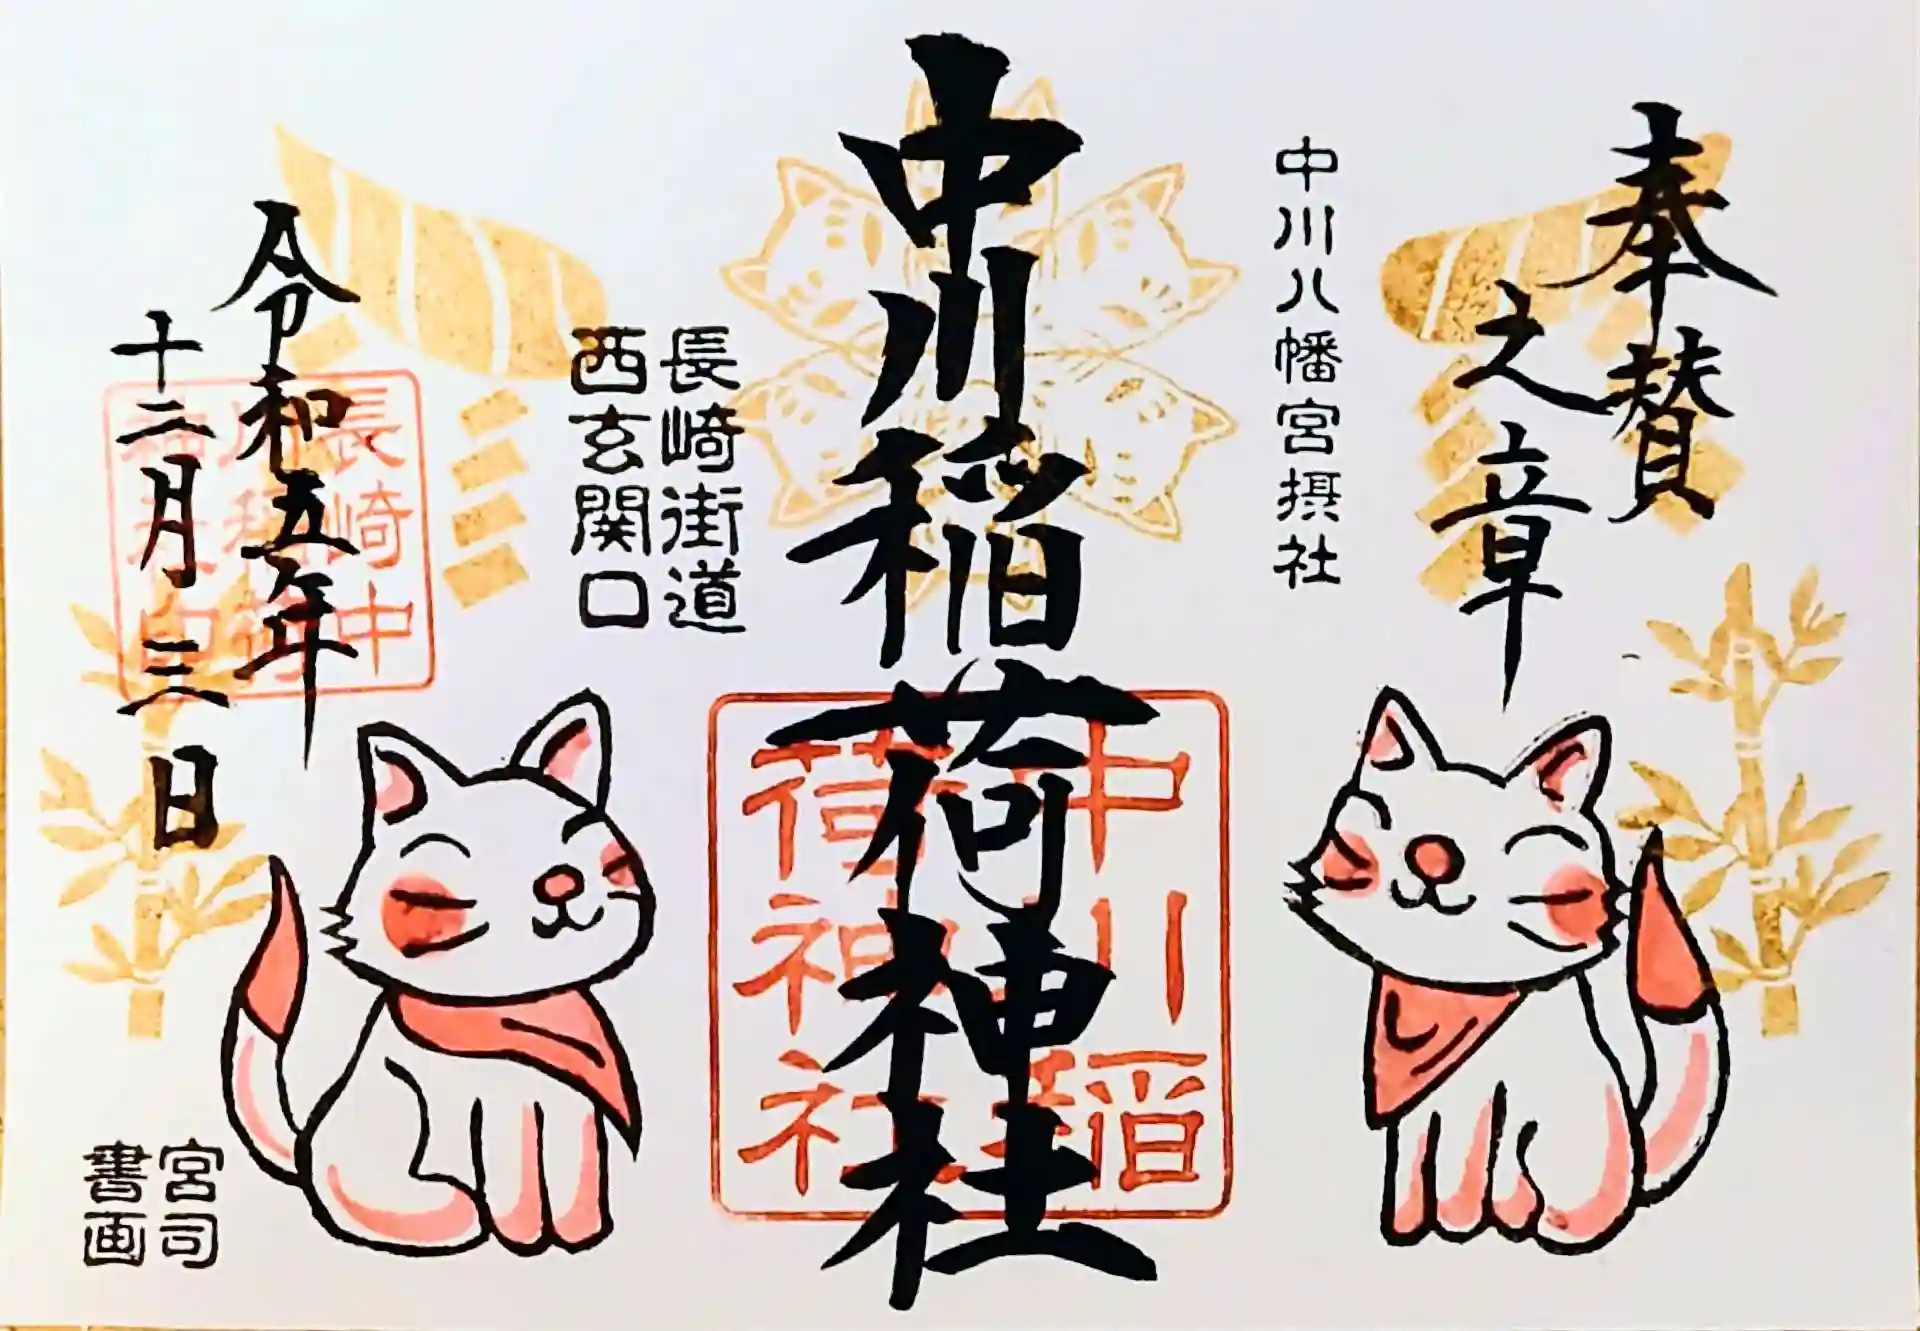 奉賛
之章
中川八幡宮摂社
中川稲荷神社
中川稲
荷神社
長崎街道
西玄関口
令和五年
十二月三日
長崎中
川稲荷
宮司
書画